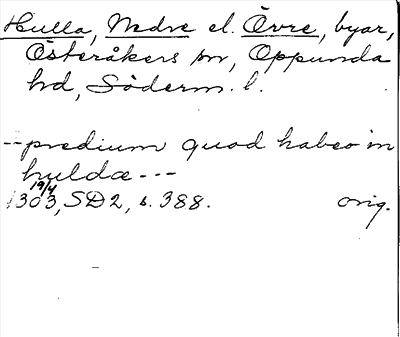 Hulla, Nedre el. Övre, byar,
Österåkers sn, Oppunda
hd, Söderm. l.
-- predium quod habeo in
huldæ ---
19/4
1303, SD2, s. 388. orig.